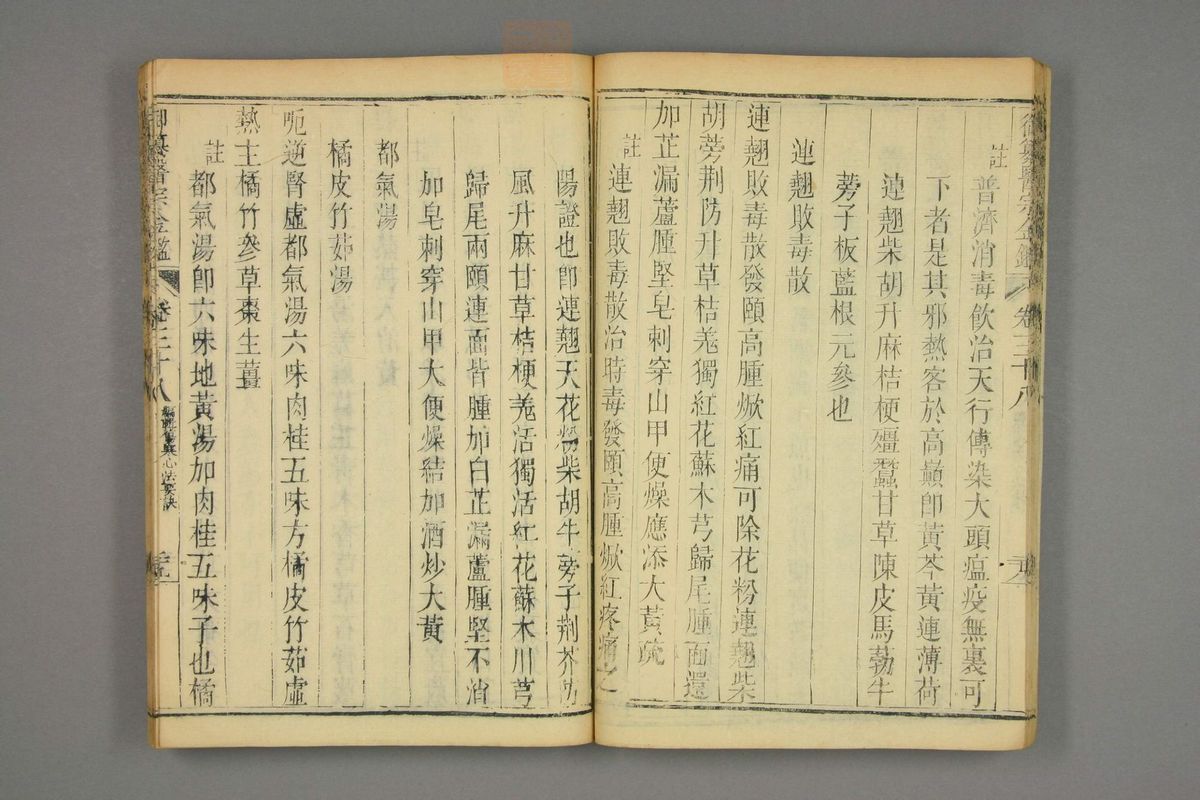 御纂醫宗金鑑 卷三十八
註 普濟消毒飲治天行傳染大頭瘟疫無裏可
下者是其邪熱客於高巔卽黃芩黃連薄荷
連翹柴胡升麻桔梗殭蠶甘草陳皮馬勃牛
蒡子板藍根元參也
連翹敗毒散
連翹敗毒散發頤高腫焮紅痛可除花粉連翹柴
胡蒡荆防升草桔羗獨紅花蘇木芎歸尾腫面還
加芷漏蘆腫堅皂刺穿山甲便燥應添大黃疏
註 連翹敗毒散治時毒發頤高腫焮紅疼痛之
陽證也卽連翹天花粉柴胡牛蒡子荆芥防
風升麻甘草桔梗羗活獨活紅花蘇木川芎
歸尾兩頤連面皆腫加白芷漏蘆腫堅不消
加皂刺穿山甲大便燥結加酒炒大黃
都氣湯
橘皮竹茹湯
呃逆腎虛都氣湯六味肉桂五味方橘皮竹茹虛
熱主橘竹參草棗生薑
註 都氣湯卽六味地黃湯加肉桂五味子也橘
御纂醫宗金鑑 卷三十八 編輯傷寒心法要訣